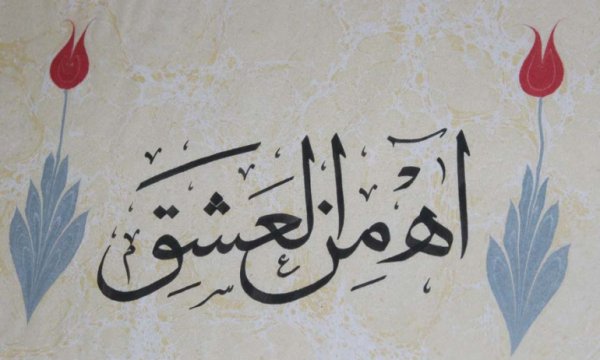 اه من العشق